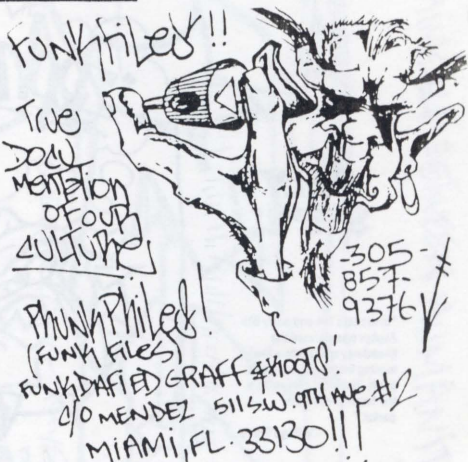 FUNKFILES!!
TRUE
DOCU
MENTATION
OF OUR
CULTURE
-305-
857-
9376
PHUNKPHILES!
(FUNK FILES)
FUNKDAFIED GRAFF
C/O MENDEZ 511 S.W. 9TH AVE #2
MIAMI, FL. 33130!!!